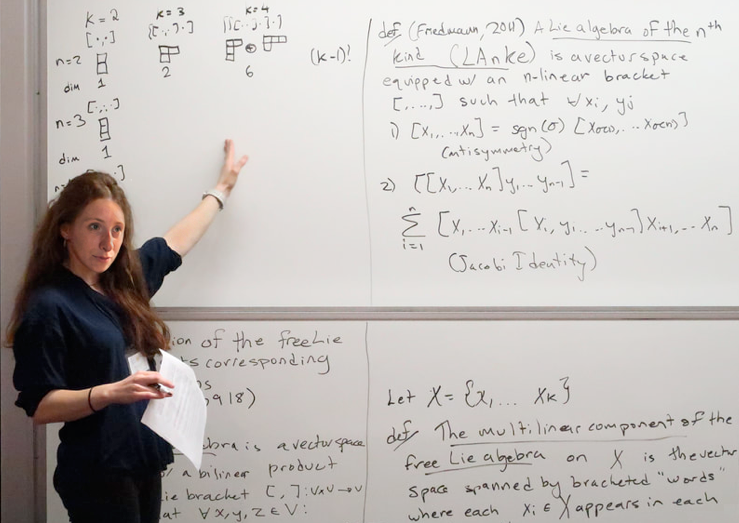 k=2 k=3 k=4
[·,·] [[·,·]·] [[[·,·]·]·]
n=2 ⊕ (k-1)!
dim 1 2 6
[·,·,·]
n=3
dim 1
def (Friedmann, 2011) A Lie algebra of the nth
kind (LAnKe) is a vector space
equipped w/ an n-linear bracket
[,...,] such that ∀ xi, yj
1) [x1,...,xn] = sgn(σ) [xσ(1),...xσ(n)]
(antisymmetry)
2) [[x1,...xn]y1...yn-1] =
n∑i=1 [x1...xi-1 [xi, y1...yn-1]xi+1,...xn]
(Jacobi Identity)
of the free Lie
corresponding
918)
is a vector space
a bilinear product
bracket [,]:V∧V→V
∀x,y,z∈V:
Let X={x1...xk}
def The multilinear component of the
free Lie algebra on X is the vector
space spanned by bracketed "words"
where each xi∈X appears in each